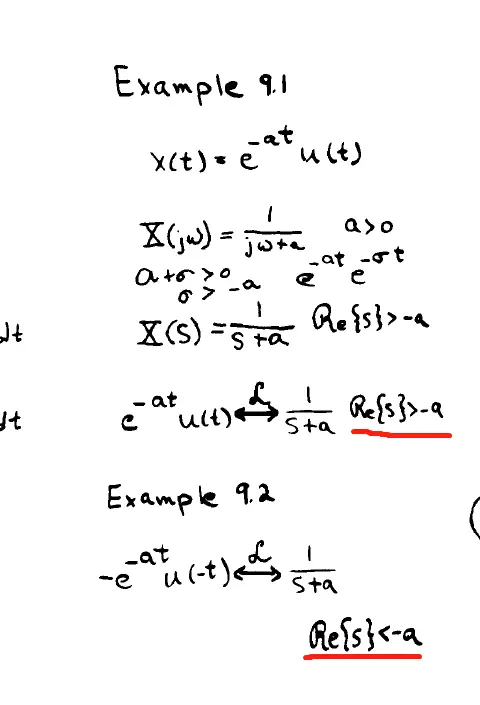 Example 9.1
x(t) = e^{-at} u(t)
X(jω) = 1/(jω+a) a>0
a+σ>0 e^{-at} e^{-σt}
σ>-a
dt X(s) = 1/(s+a) Re{s}>-a
dt e^{-at} u(t) ⟷^ℒ 1/(s+a) Re{s}>-a
Example 9.2
-e^{-at} u(-t) ⟷^ℒ 1/(s+a)
Re{s}<-a